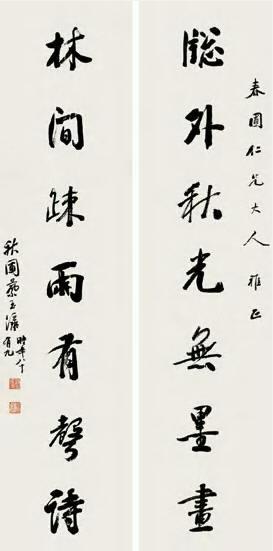 春圃仁兄大人 雅正
牕外秋光無墨畫
林間踈雨有聲詩
秋圃蔡玉瀛時年八十
有九